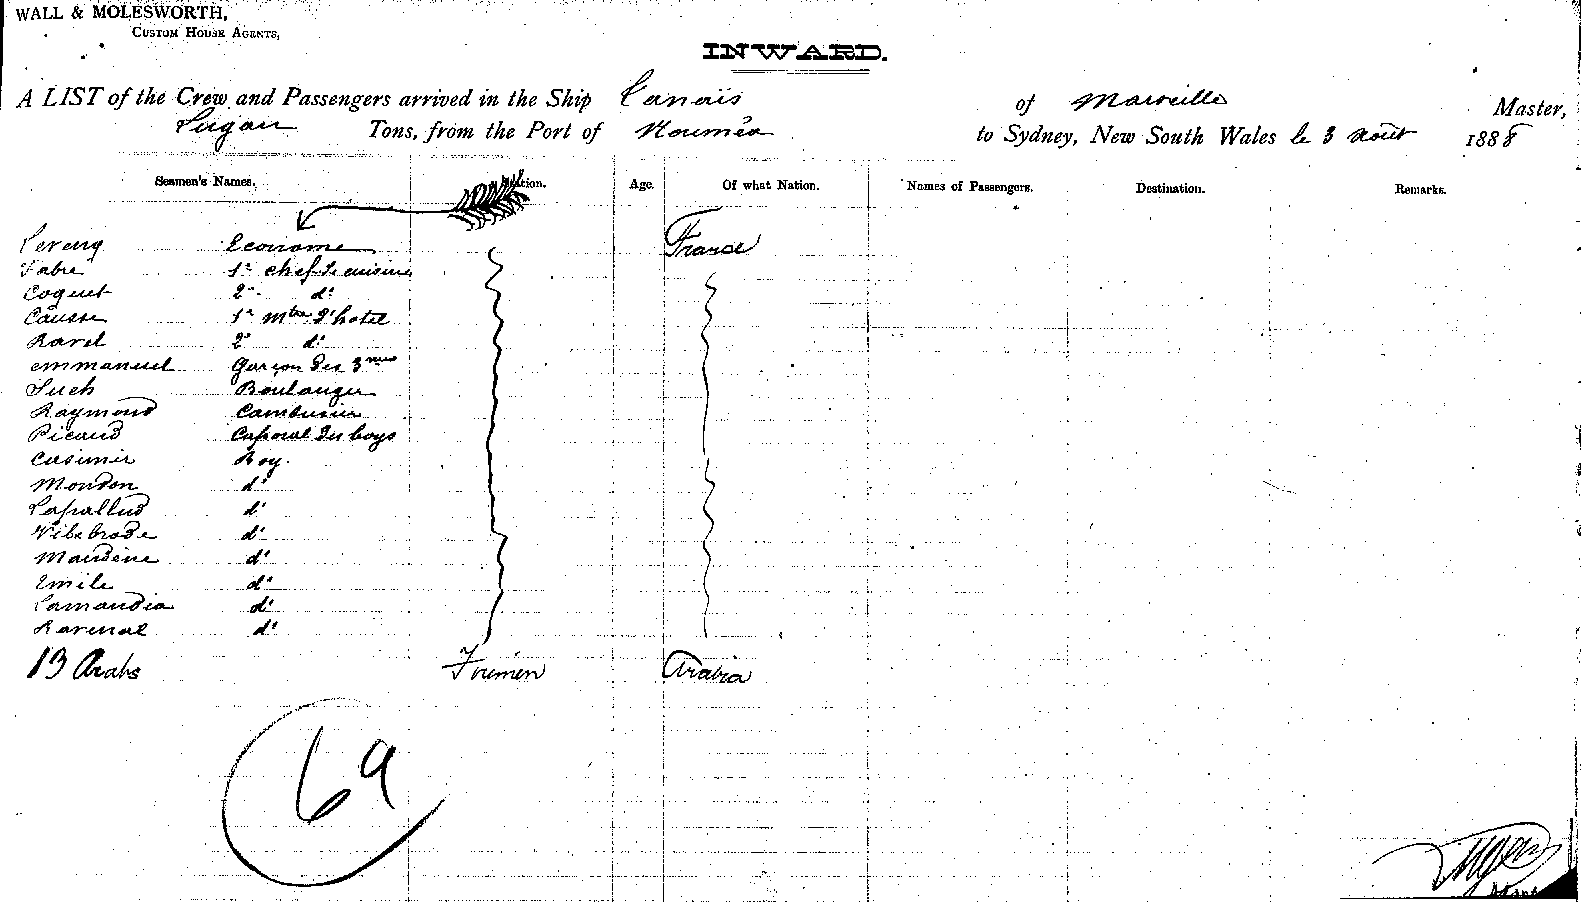 WALL & MOLESWORTH,
CUSTOM HOUSE AGENTS,
INWARD.
A LIST of the Crew and Passengers arrived in the Ship Tanaïs of Marseille Master,
Tons, from the Port of Nouméa to Sydney, New South Wales le 3 août 1888
Seamen's Names. Age. Of what Nation. Names of Passengers. Destination. Remarks.
Econome France
Fabre 1er chef de cuisine
Coquet 2e do
Causse 1er mtre d'hotel
Ravel 2e do
Emmanuel Garçon des 3mes
Such Boulanger
Raymond Cambusier
Picaud Caporal des boys
Casimir Boy.
Mondon do
Lapallud do
do
Maudène do
Emile do
Lamandia do
Ravenal do
13 Arabs Firemen Arabia
69